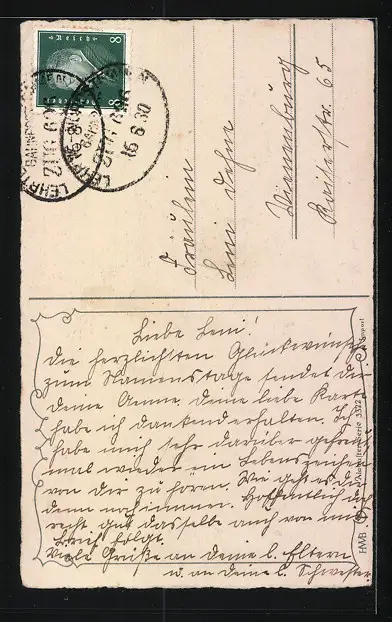 8 Deutsches Reich 8
ZUG
16.6.30
Fräulein
Leni Dehne
Vienenburg
Kaiserstr. 65
Liebe Leni!
Die herzlichsten Glückwünsche
zum Namenstage sendet dir
deine Anna. Deine liebe Karte
habe ich dankend erhalten. Ich
habe mich sehr darüber gefreut
mal wieder ein Lebenszeichen
von dir zu hören. Wie geht es dir
denn noch immer. Hoffentlich doch
recht gut dasselbe auch von mir
Brief folgt.
Viele Grüße an deine l. Eltern
u. an deine l. Schwester
HWB